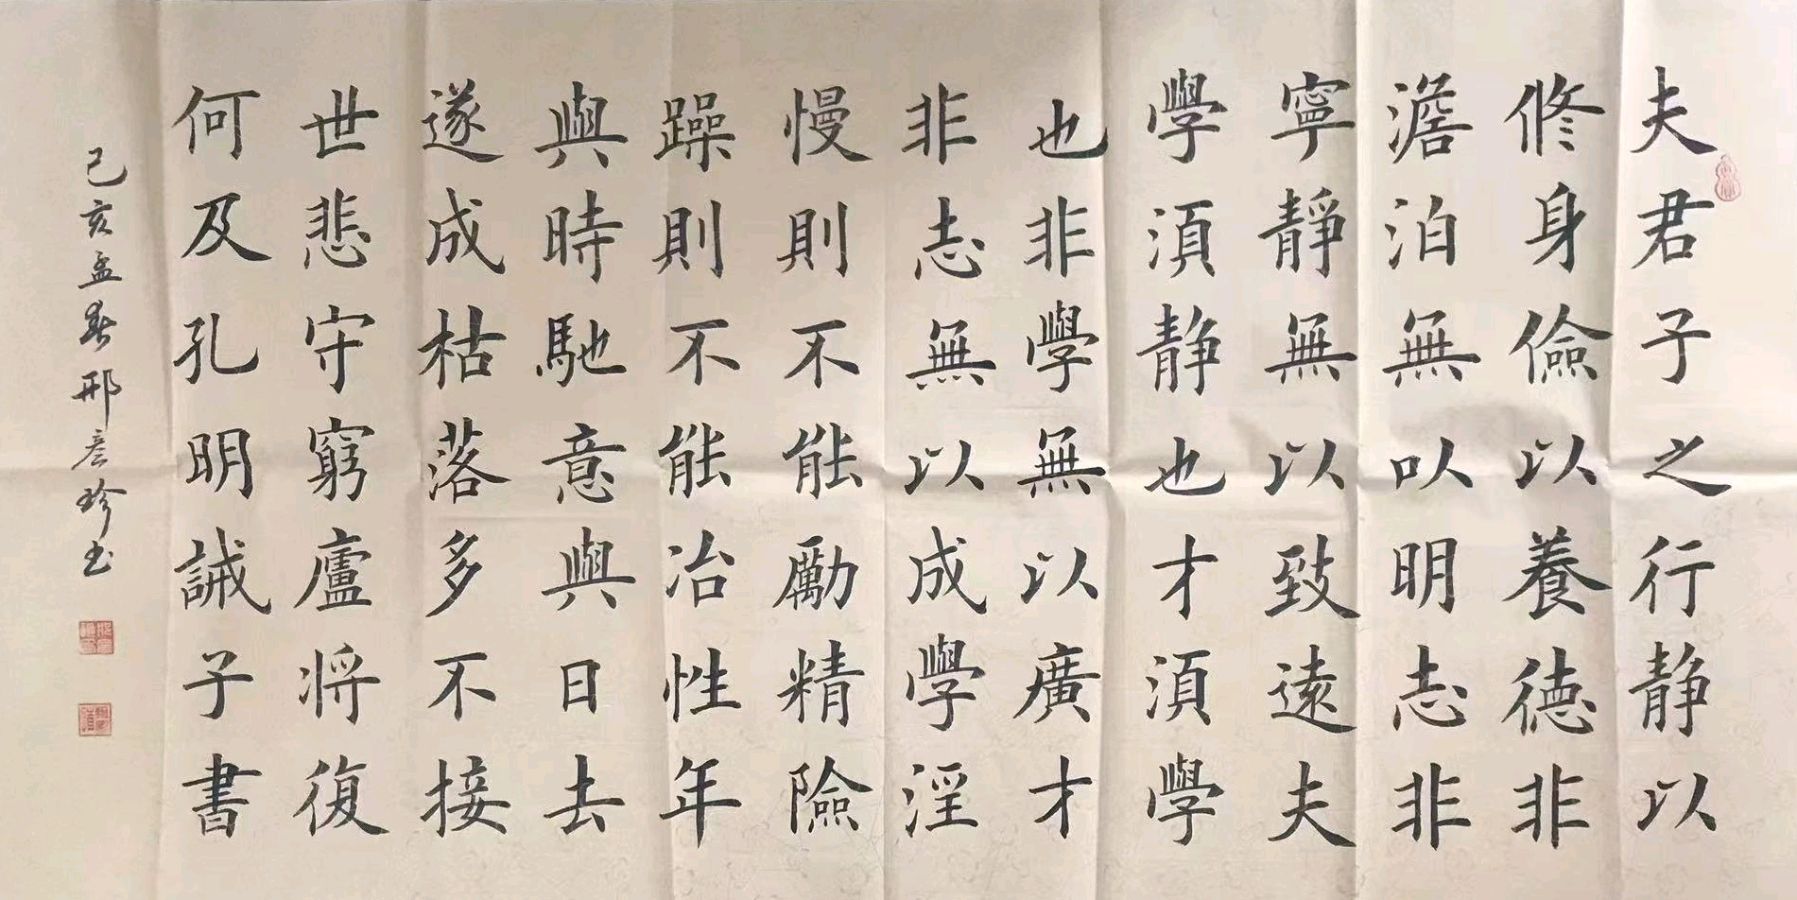 夫君子之行静以
修身儉以養德非
澹泊無以明志非
寧靜無以致遠夫
學須静也才須學
也非學無以廣才
非志無以成學淫
慢則不能勵精險
躁則不能冶性年
與時馳意與日去
遂成枯落多不接
世悲守窮廬將復
何及孔明誡子書
己亥孟春邢彦珍书